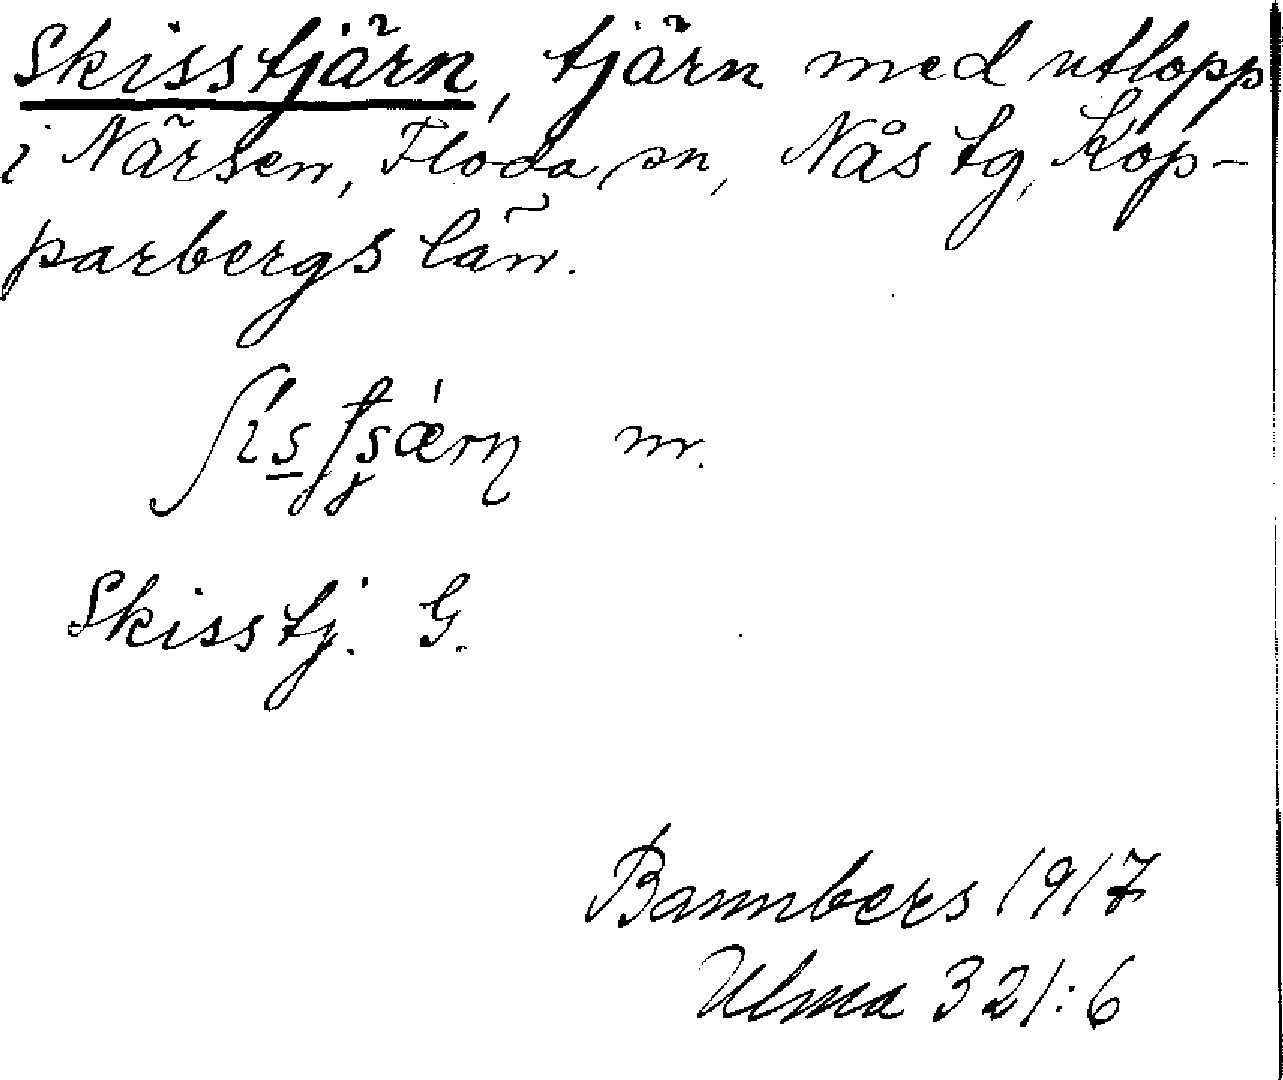 Skisstjärn, tjärn med utlopp
i Närsen, Floda sn, Nås tg, Kop-
parbergs län.
m.
Skisstj. G.
Bannbers 1917
Ulma 321:6